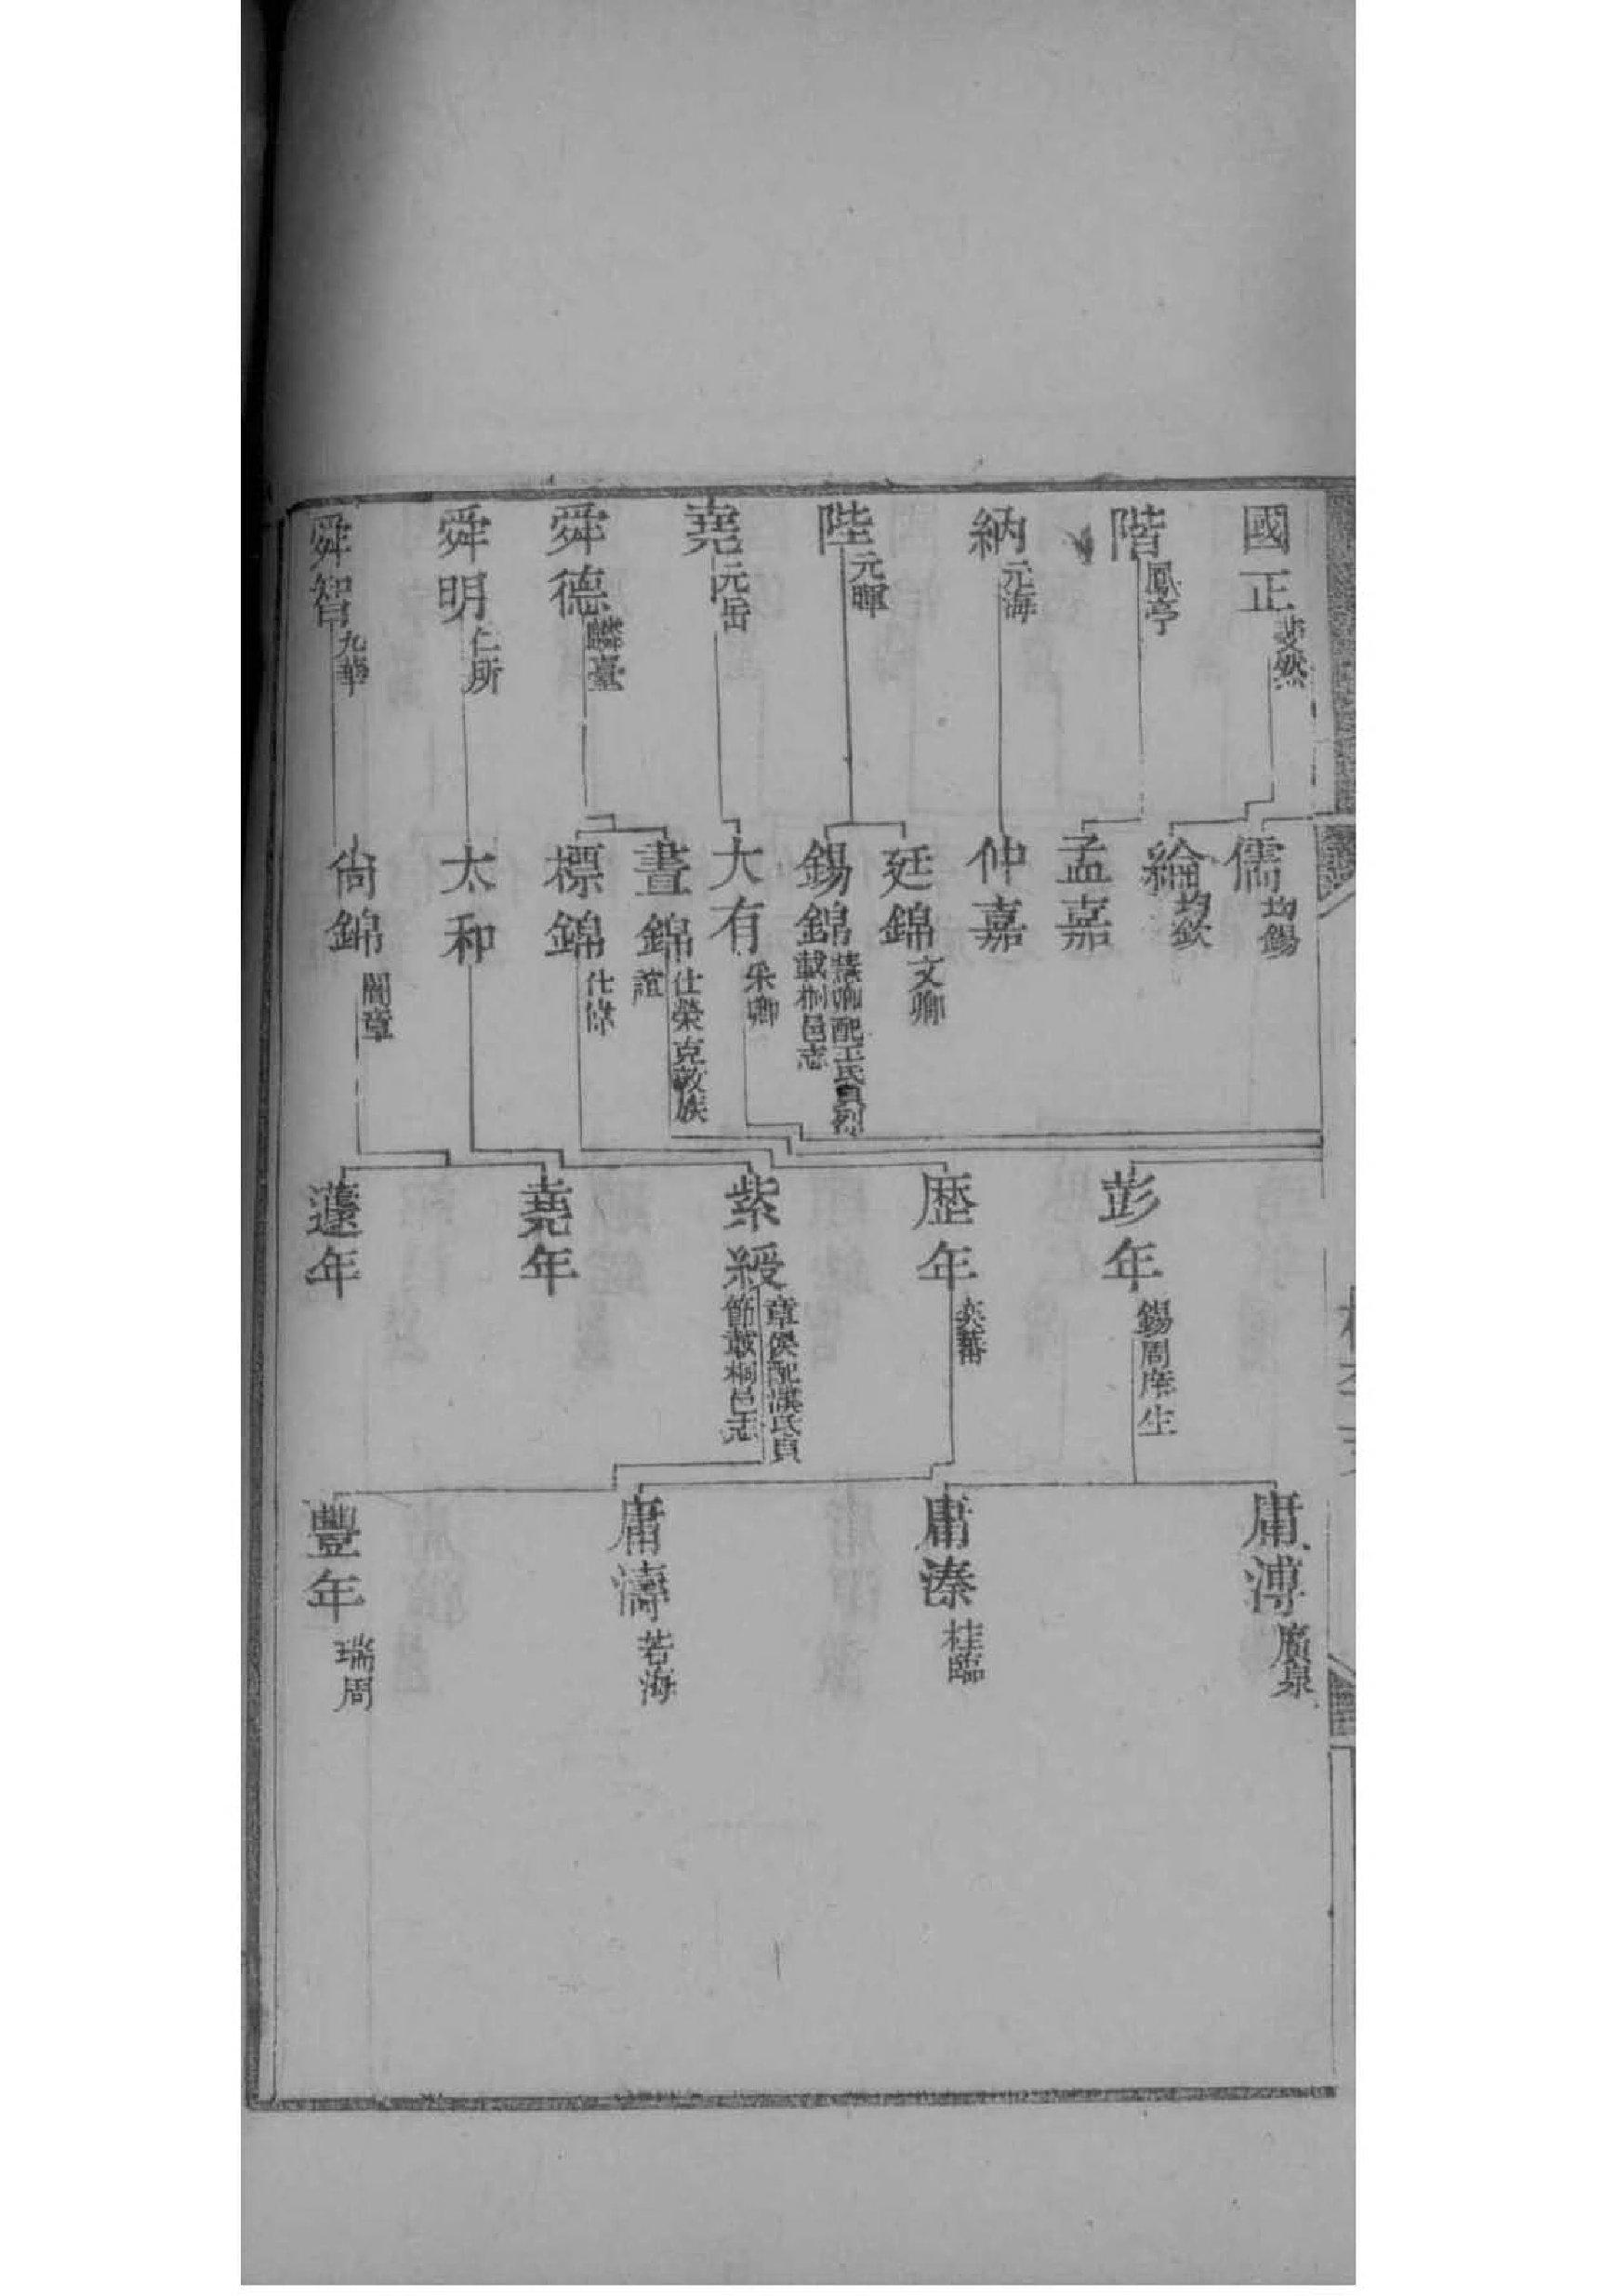 國正 斐然
階 鳳亭
納 元海
陛 元暉
堯 元岳
舜德 麟臺
舜明 仁所
舜智 九華
儒 均錫
綸 均欽
孟嘉
仲嘉
廷錦 文卿
錫錦 配王氏貞烈
載桐邑志
大有 采卿
晝錦 仕榮克敦族
誼
標錦 仕偉
太和
尙錦 闇章
彭年 錫周庠生
歴年 奕蕃
紫綬 章侯配漢氏貞
節載桐邑志
堯年
蘧年
庸溥 廣泉
庸溱 桂臨
庸濤 若海
豐年 瑞周